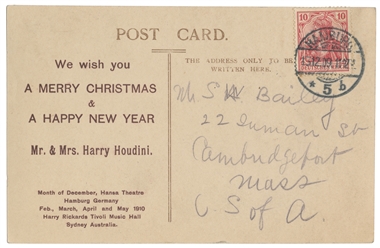 POST CARD.
We wish you
A MERRY CHRISTMAS
&
A HAPPY NEW YEAR
Mr. & Mrs. Harry Houdini.
Month of December, Hansa Theatre
Hamburg Germany
Feb., March, April and May 1910
Harry Rickards Tivoli Music Hall
Sydney Australia.
THE ADDRESS ONLY TO BE
WRITTEN HERE.
10 10
HAMBURG
* 5 b
Mr. S W Bailey
22 Inman St
Cambridgeport
Mass
U S of A.